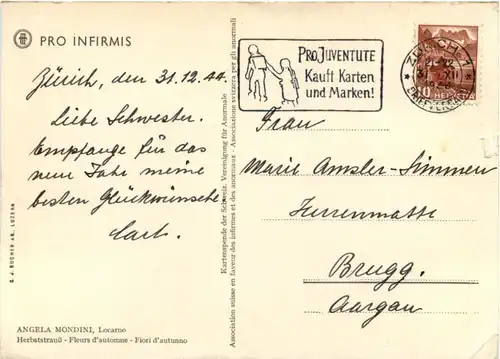 PRO INFIRMIS
Zürich, den 31.12.44.
Liebe Schwester.
Empfange für das
neue Jahr meine
besten Glückwünsche
ANGELA MONDINI, Locarno
Herbststrauß - Fleurs d'automne - Fiori d'autunno
C. J. BUCHER AG., LUZERN
Kartenspende der Schweiz. Vereinigung für Anormale
Association suisse en faveur des infirmes et des anormaux - Associazione svizzera per gli anormali
PRO JUVENTUTE
Kauft Karten
und Marken!
ZÜRICH 1
10 HELVETIA
Frau
Marie Amsler-Simmen
Herrenmatte
Brugg.
Aargau